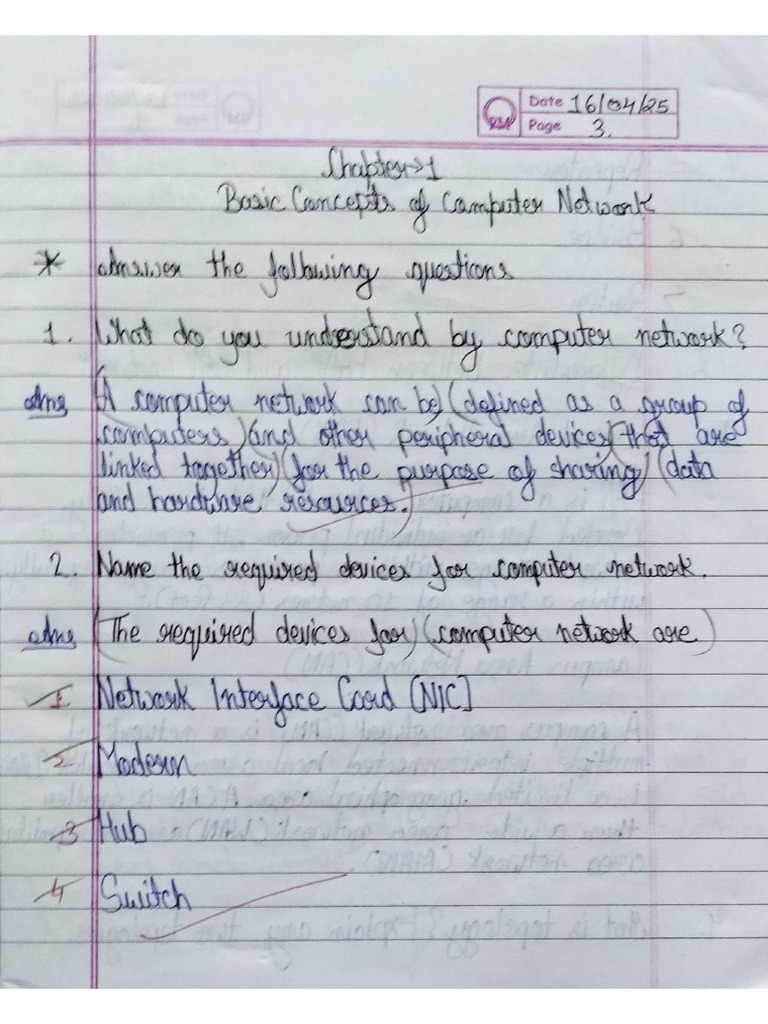 Date 16/04/25
Page 3.
Chapter→1
Basic Concepts of Computer Network
* Answer the following questions
1. What do you understand by computer network?
Ans (A computer network can be) (defined as a group of
computers) (and other peripheral devices) (that are
linked together) (for the purpose of sharing) (data
and hardware resources.)
2. Name the required devices for computer network.
Ans (The required devices for) (computer network are)
1 Network Interface Card [NIC]
2 Modern
3 Hub
4 Switch